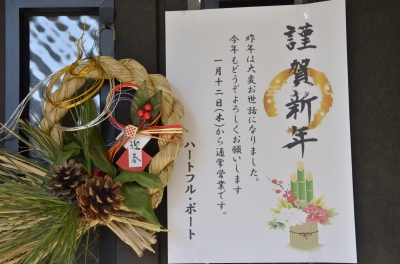 謹賀新年
昨年は大変お世話になりました。
今年もどうぞよろしくお願いします
一月十二日(木)から通常営業です。
ハートフル・ポート
迎春